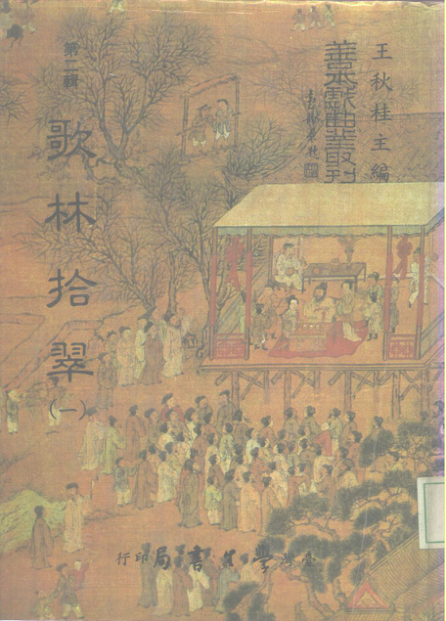 王秋桂主編
善本戲曲叢刊
第二輯
歌林拾翠
(一)
學生書局印行